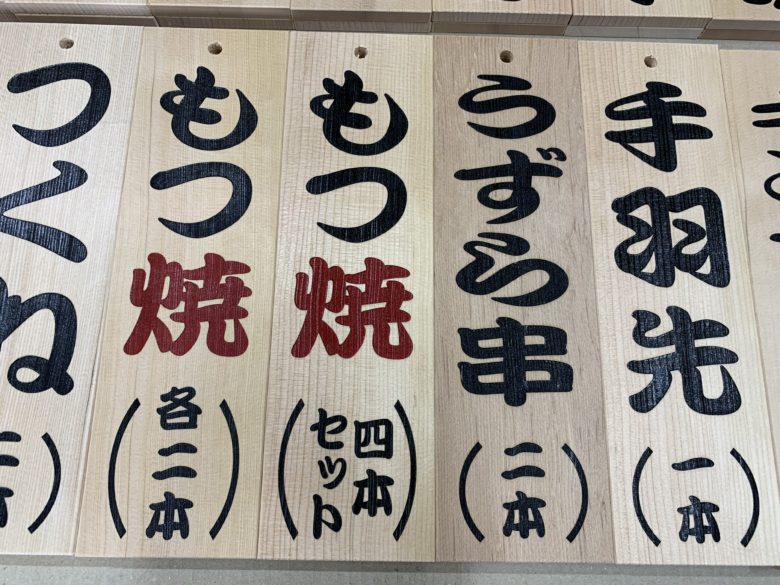 手羽先
（一本）
うずら串
（二本）
もつ焼
（四本
セット）
もつ焼
（各二本）
つくね